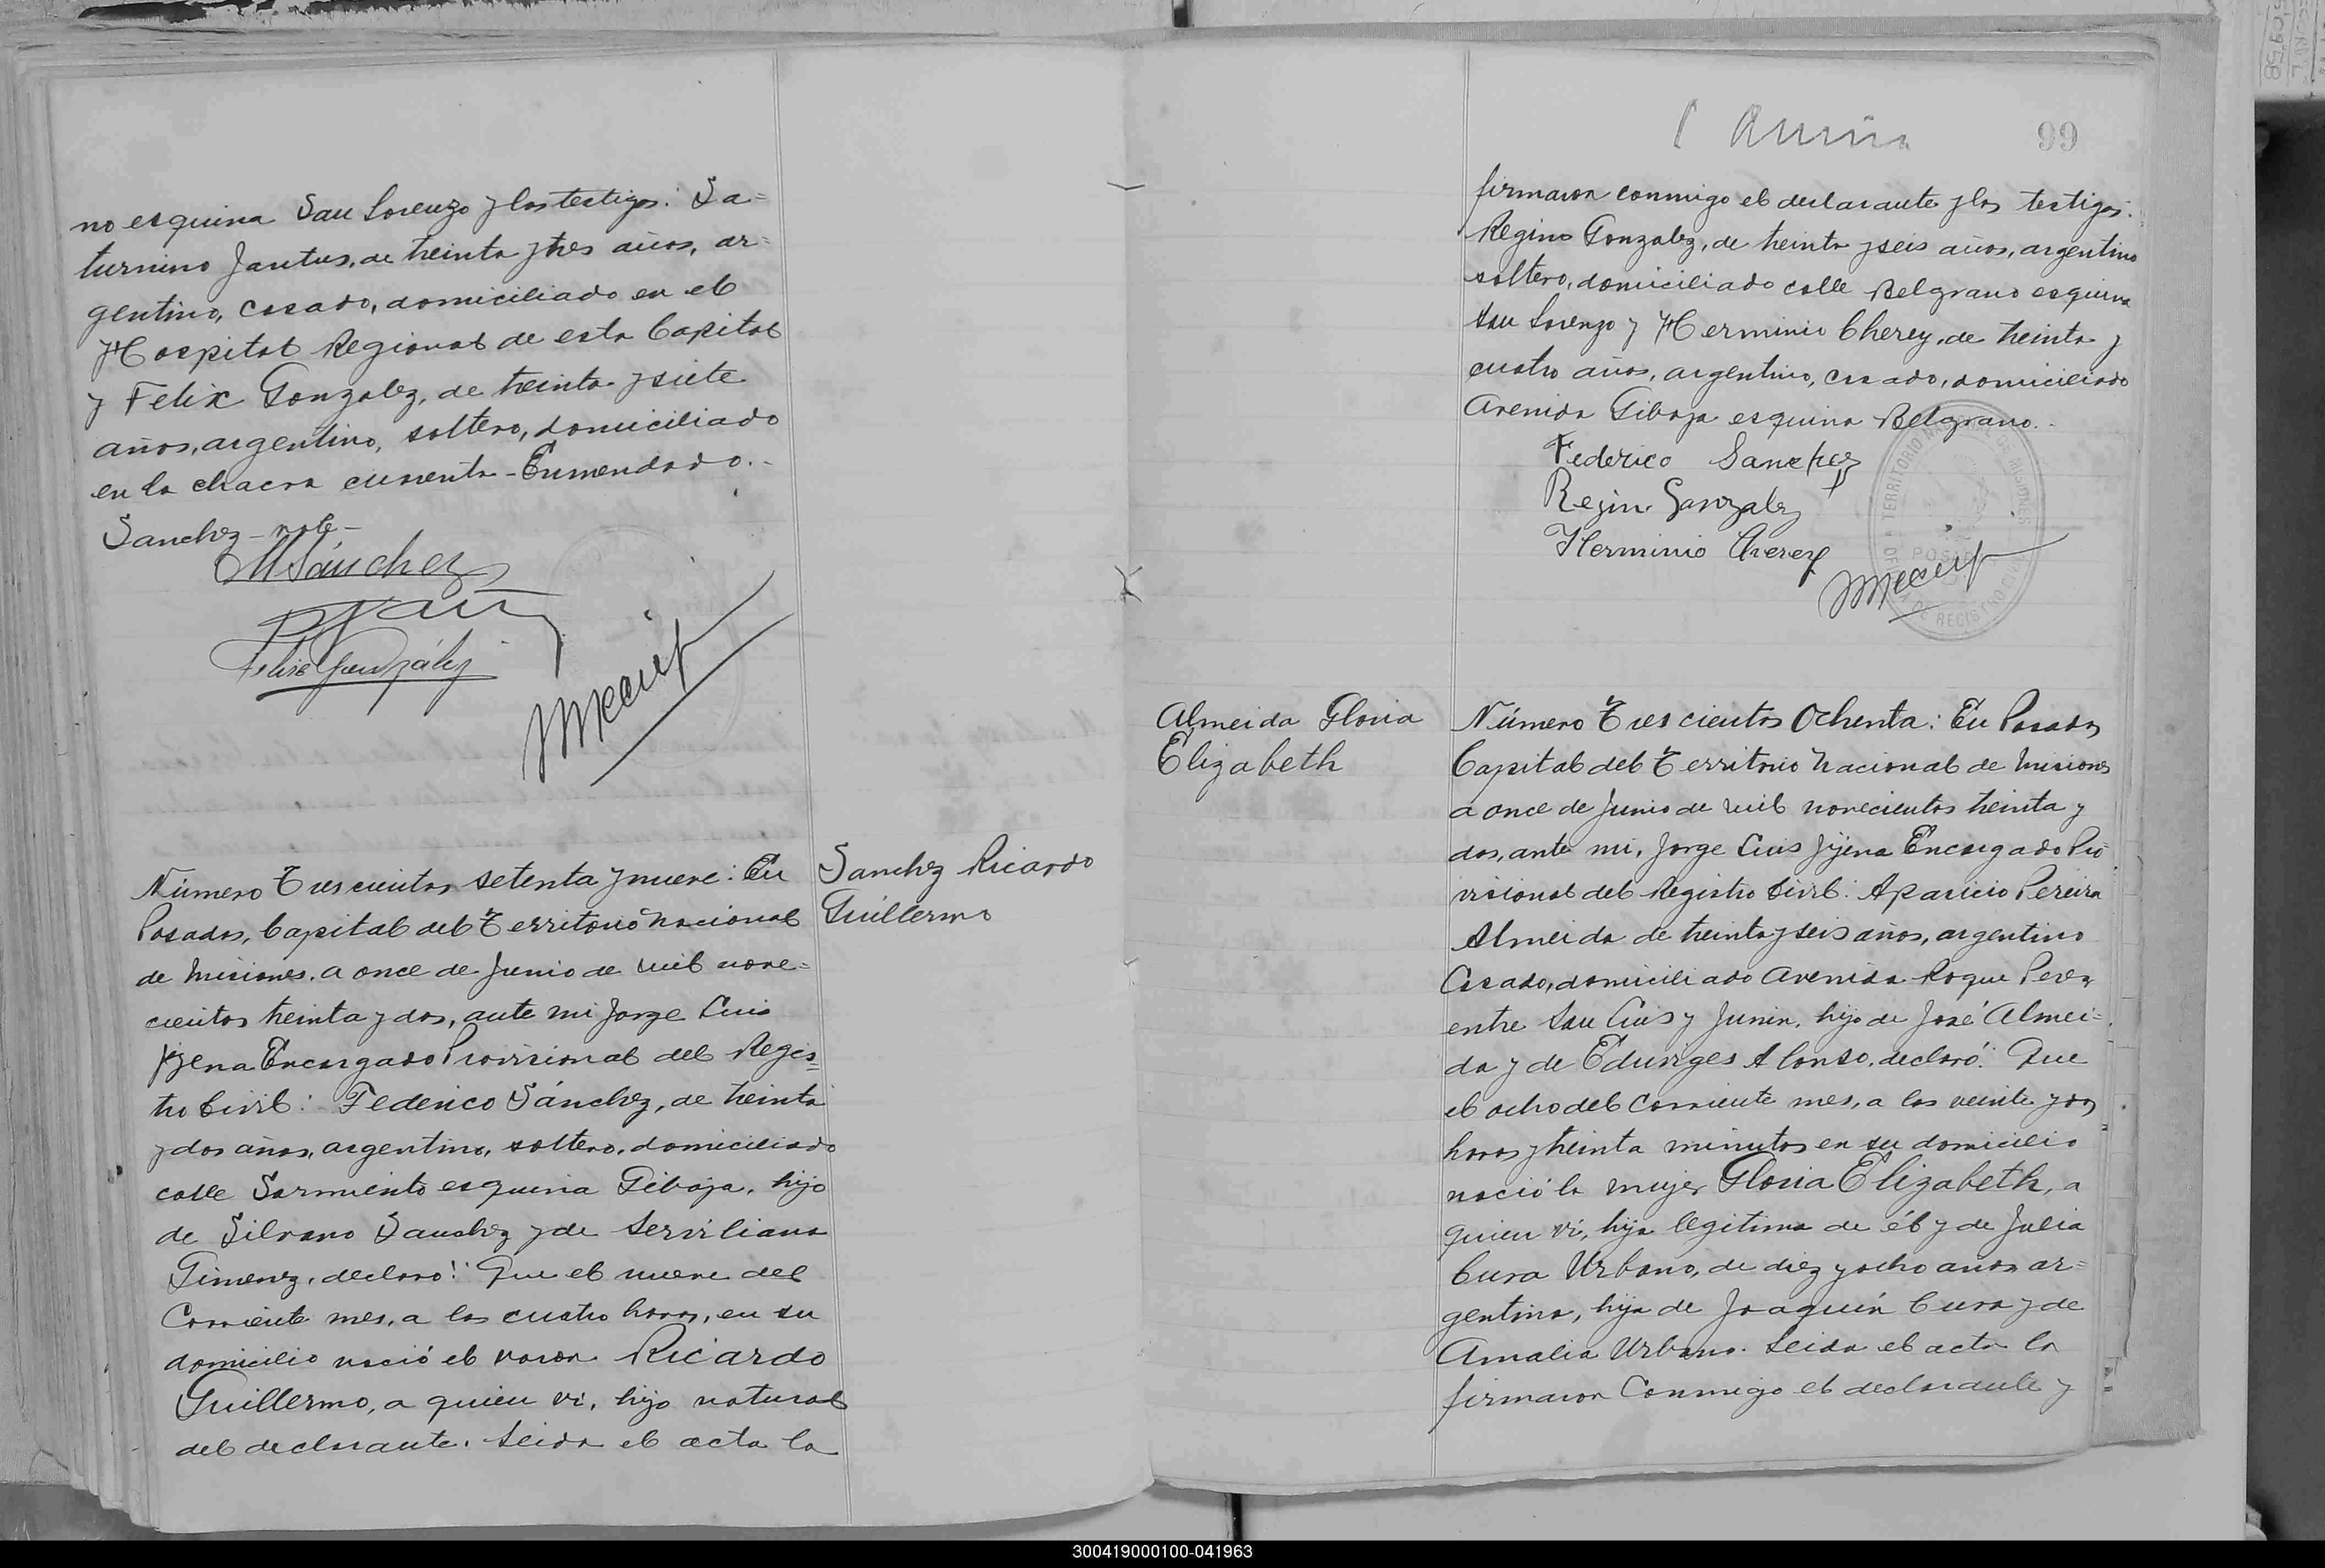 no esquina San Lorenzo y los testigos: Sa=
turnino Jantus, de treinta y tres años, ar=
gentino, casado, domiciliado en el
Hospital Regional de esta Capital
y Felix Gonzalez, de treinta y siete
años, argentino, soltero, domiciliado
en la chacra cuarenta - Enmendado..-
Sanchez - note -
M Sánchez
Felix González
Número Trescientos setenta y nueve: En
Posadas, Capital del Territorio Nacional
de Misiones, a once de Junio de mil nove=
cientos treinta y dos, ante mi Jorge Luis
Jijena Encargado Provisional del Regis=
tro Civil: Federico Sánchez, de treinta
y dos años, argentino, soltero, domiciliado
calle Sarmiento esquina Gibaja, hijo
de Silvano Sanchez y de Serviliana
Gimenez, declaró: Que el nueve del
Corriente mes, a las cuatro horas, en su
domicilio nació el varon Ricardo
Guillermo, a quien vi, hijo natural
del declarante. Leida el acta la
Sanchez Ricardo
Guillermo
99
firmaron conmigo el declarante y los testigos:
Regino Gonzalez, de treinta y seis años, argentino
soltero, domiciliado calle Belgrano esquina
San Lorenzo y Herminio Cherey, de treinta y
cuatro años, argentino, casado, domiciliado
Avenida Gibaja esquina Belgrano..
Federico Sanchez
Regin Gonzalez
Herminio Cherey
TERRITORIO NACIONAL DE MISIONES
POSADAS
DE REGISTRO CIVIL
Almeida Gloria
Elizabeth
Número Trescientos Ochenta: En Posadas
Capital del Territorio Nacional de Misiones
a once de Junio de mil novecientos treinta y
dos, ante mi, Jorge Luis Jijena Encargado Pro
visional del Registro Civil: Aparicio Pereira
Almeida de treinta y seis años, argentino
Casado, domiciliado Avenida Roque Perez
entre San Luis y Junin, hijo de José Almei=
da y de Eduviges Alonso, declaró: Que
el ocho del Corriente mes, a las veinte y dos
horas y treinta minutos en su domicilio
nació la mujer Gloria Elizabeth, a
quien vi, hija legitima de él y de Julia
Cura Urbano, de diez y ocho años ar=
gentina, hija de Joaquín Cura y de
Amalia Urbano. Leida el acta la
firmaron Conmigo el declarante y
300419000100-041963